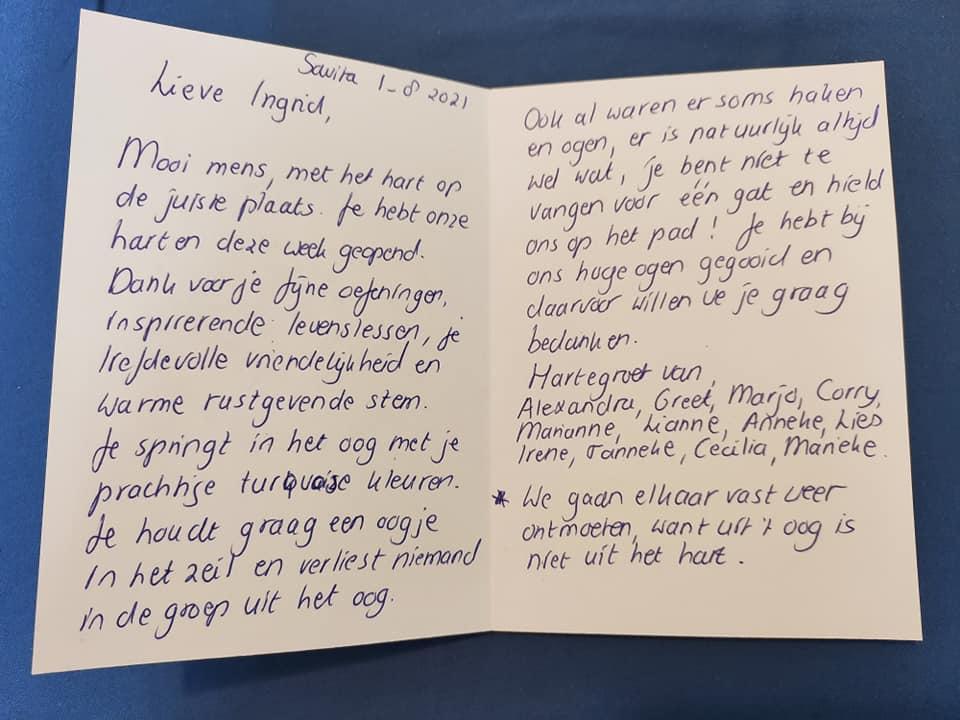 Savita 1-8 2021
Lieve Ingrid,
Mooi mens, met het hart op
de juiste plaats. Je hebt onze
harten deze week geopend.
Dank voor je fijne oefeningen,
inspirerende levenslessen, je
liefdevolle vriendelijkheid en
warme rustgevende stem.
Je springt in het oog met je
prachtige turquoise kleuren.
Je houdt graag een oogje
in het zeil en verliest niemand
in de groep uit het oog.
Ook al waren er soms haken
en ogen, er is natuurlijk altijd
wel wat, je bent niet te
vangen voor één gat en hield
ons op het pad! Je hebt bij
ons hoge ogen gegooid en
daarvoor willen we je graag
bedanken.
Hartegroet van,
Alexandra, Greet, Marjo, Corry,
Marianne, Lianne, Anneke, Lies
Irene, Janneke, Cecilia, Marieke.
* We gaan elkaar vast weer
ontmoeten, want uit 't oog is
niet uit het hart.